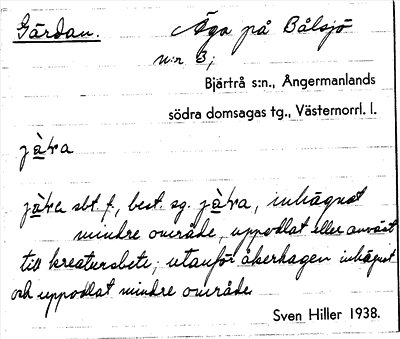 Gärdan. Äga på Bålsjö
n:r 3;
Bjärtrå s:n., Ångermanlands
södra domsagas tg., Västernorrl. l.
jàra
jàra sbt f., best. sg. jàra, inhägnat
mindre område, uppodlat eller använt
till kreatursbete; utanför åkerhagen inhägnat
och uppodlat mindre område
Sven Hiller 1938.